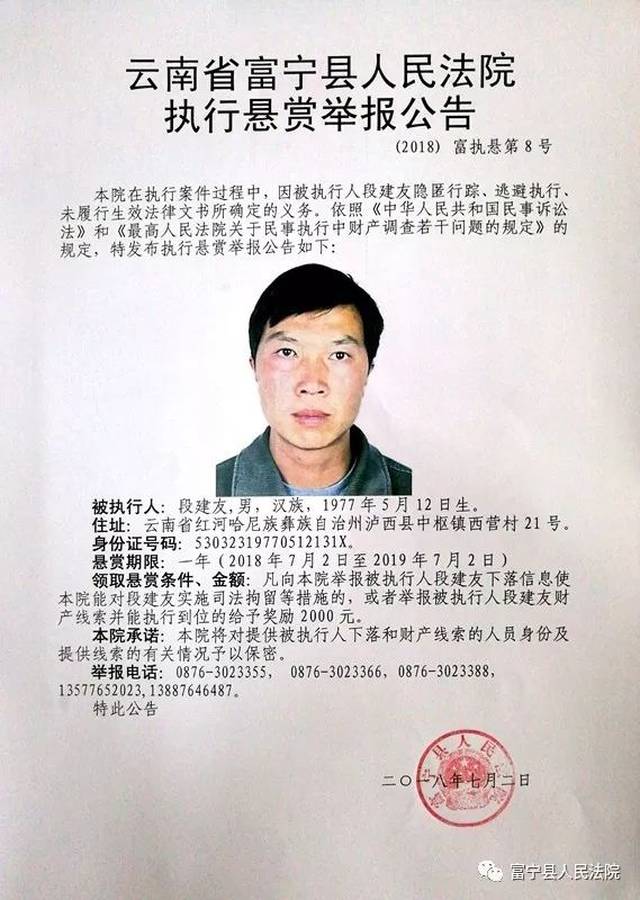 云南省富宁县人民法院
执行悬赏举报公告
(2018) 富执悬第 8 号
本院在执行案件过程中，因被执行人段建友隐匿行踪、逃避执行、
未履行生效法律文书所确定的义务。依照《中华人民共和国民事诉讼
法》和《最高人民法院关于民事执行中财产调查若干问题的规定》的
规定，特发布执行悬赏举报公告如下：
被执行人：段建友,男，汉族，1977 年 5 月 12 日生。
住址：云南省红河哈尼族彝族自治州泸西县中枢镇西营村 21 号。
身份证号码：53032319770512131X。
悬赏期限：一年（2018 年 7 月 2 日至 2019 年 7 月 2 日）
领取悬赏条件、金额：凡向本院举报被执行人段建友下落信息使
本院能对段建友实施司法拘留等措施的，或者举报被执行人段建友财
产线索并能执行到位的给予奖励 2000 元。
本院承诺：本院将对提供被执行人下落和财产线索的人员身份及
提供线索的有关情况予以保密。
举报电话：0876-3023355， 0876-3023366，0876-3023388，
13577652023,13887646487。
特此公告
二〇一八年七月二日
富宁县人民法院